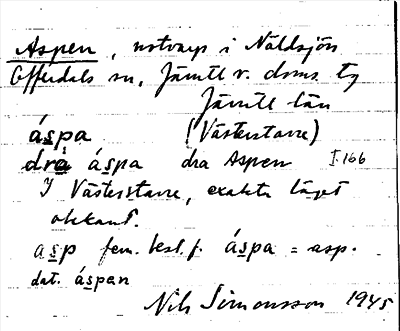 Aspen, notvarp i Näldsjön
Offerdals sn, Jämtl v. doms. tg
Jämtl län
áspa (Västerstavre)
drà áspa dra Aspen I.166
I Västerstavre, exakta läget
okänt.
asp fem. best. f. áspa = asp.
dat. áspan
Nils Simonsson 1945